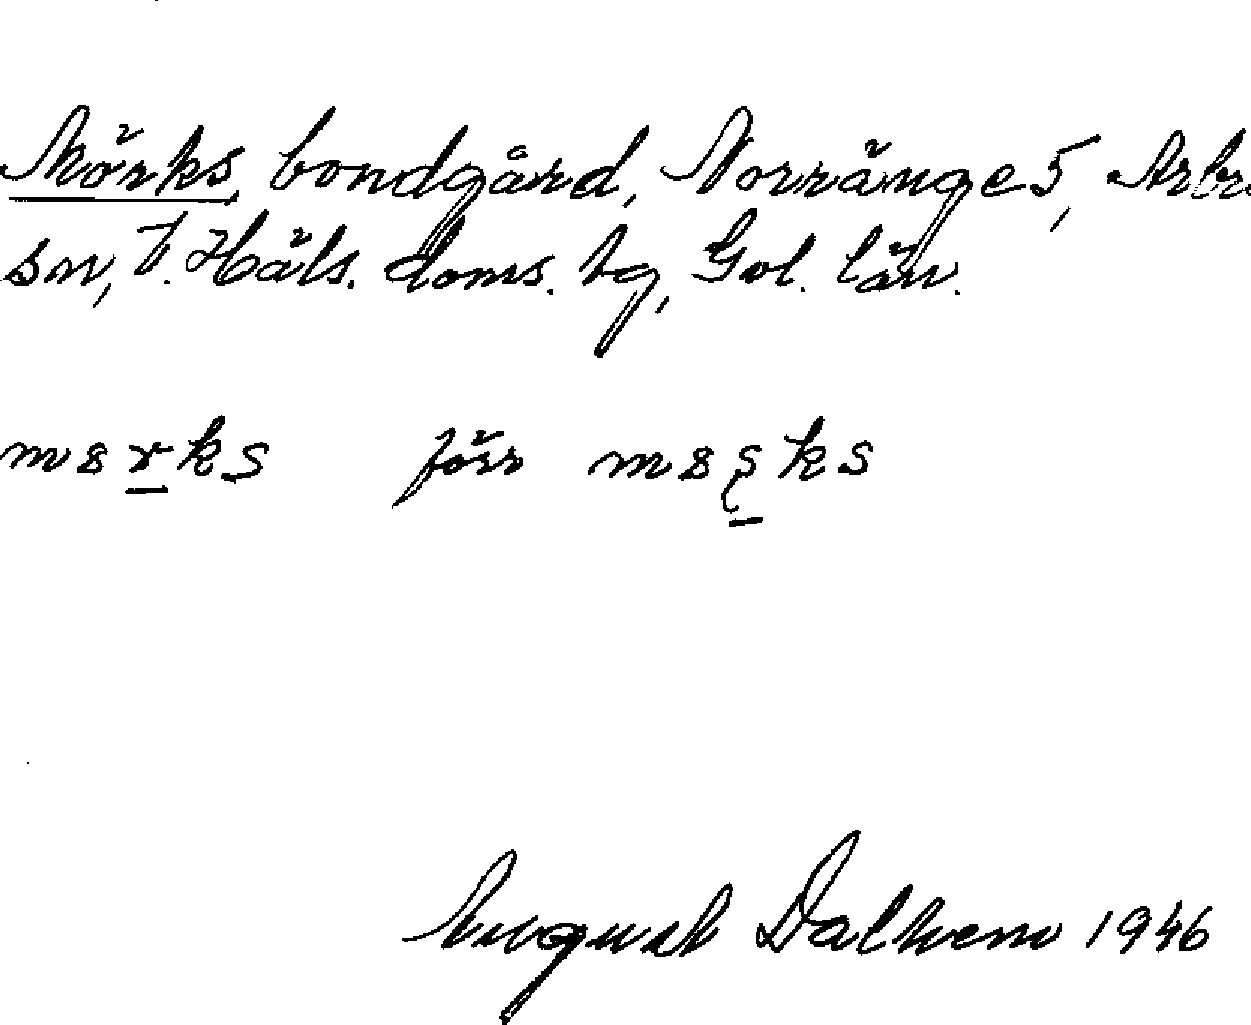 Mörks, bondgård, Norränge 5, Arbrå
sn, V. Häls. doms. tg, Gvl. län.
m8rks förr m8s̨ks
August Dalhem 1946